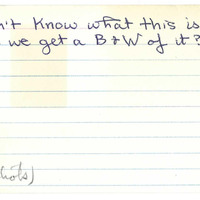 n't know what this is
we get a B+W of it?
hots)